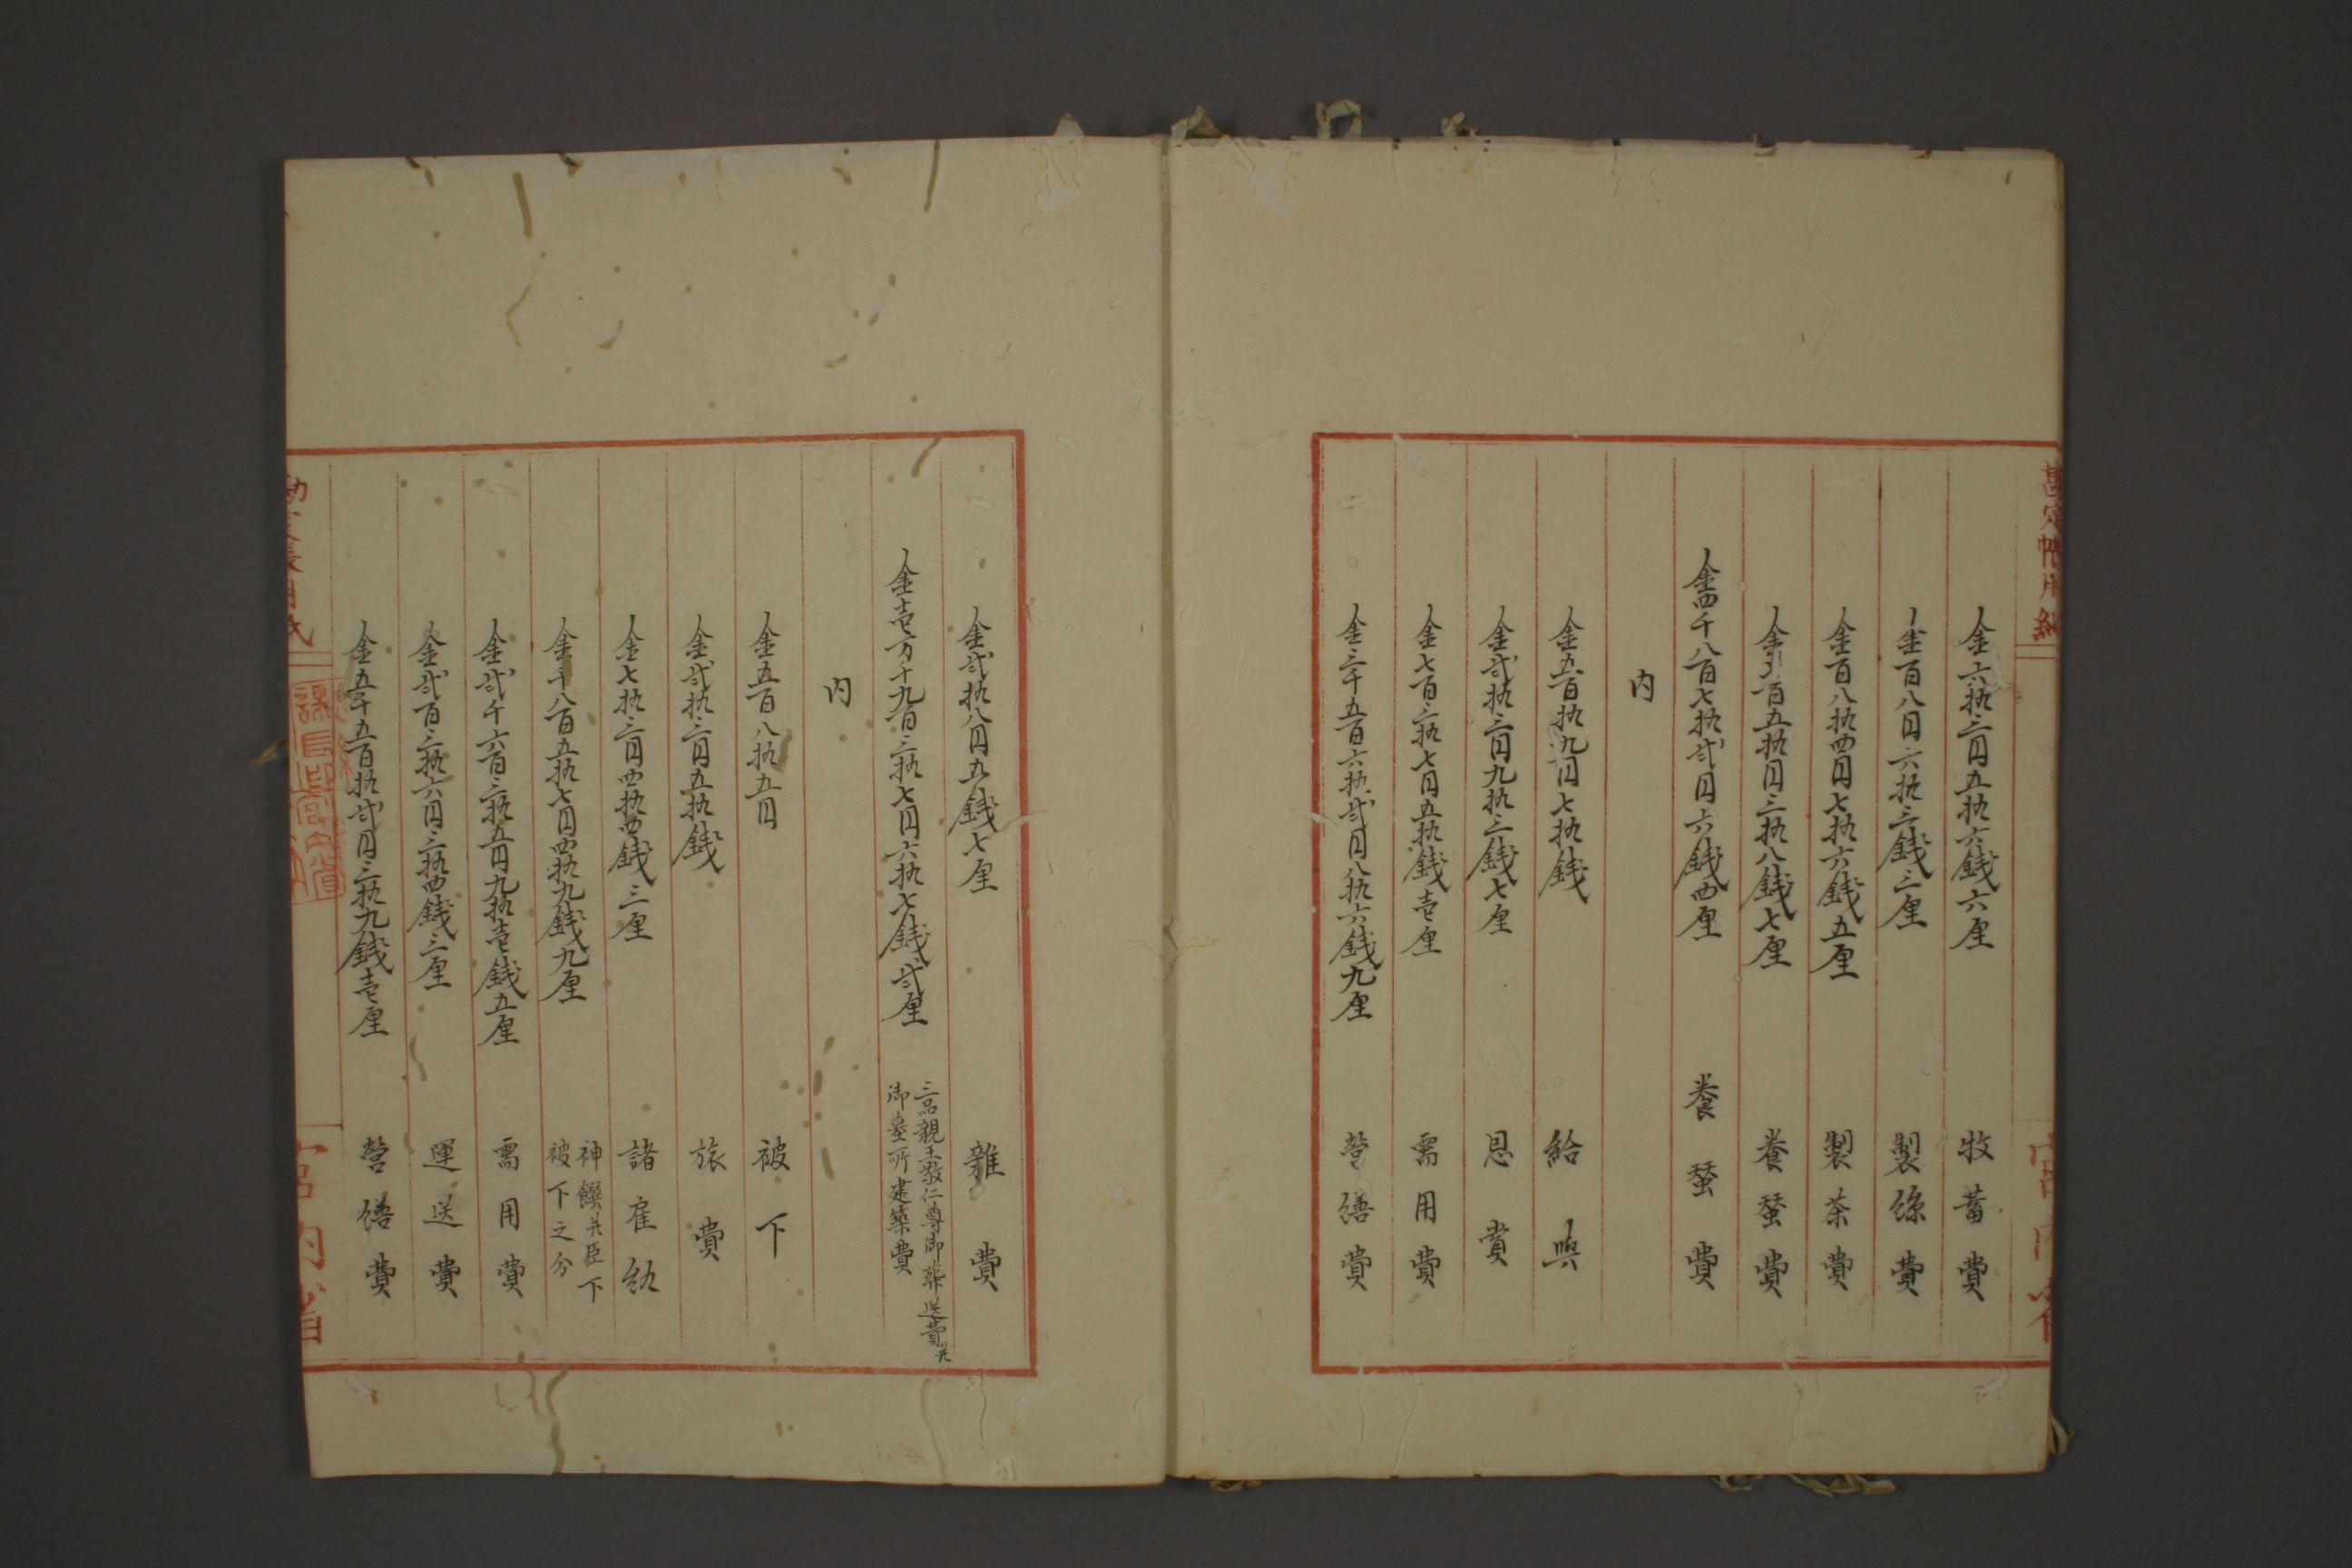 勘定帳用紙
宮内省
一金六拾三円五拾六銭六厘 牧蓄費
一金百八円六拾三銭三厘 製絲費
一金百八拾四円七拾六銭五厘 製茶費
一金三百五拾円三拾八銭七厘 養蚕費
一金四千八百七拾弐円六銭四厘 養蚕費
内
一金五百拾九円七拾銭 給与
一金弐拾三円九拾三銭七厘 恩賞
一金七百三拾七円五拾銭壱厘 需用費
一金三千五百六拾弐円八拾六銭九厘 営繕費
一金弐拾八円五銭七厘 雑費
一金壱万千九百三拾七円六拾七銭弐厘 三品親王敬仁尊御葬送費并
御墓所建築費
内
一金五百八拾五円 被下
一金弐拾三円五拾銭 旅費
一金七拾三円四拾四銭三厘 諸雇給
一金千八百五拾七円四拾九銭九厘 神饌并臣下
被下之分
一金弐千六百三拾五円九拾壱銭五厘 需用費
一金弐百三拾六円三拾四銭三厘 運送費
一金五千五百拾弐円三拾九銭壱厘 営繕費
勘定帳用紙
宮内省